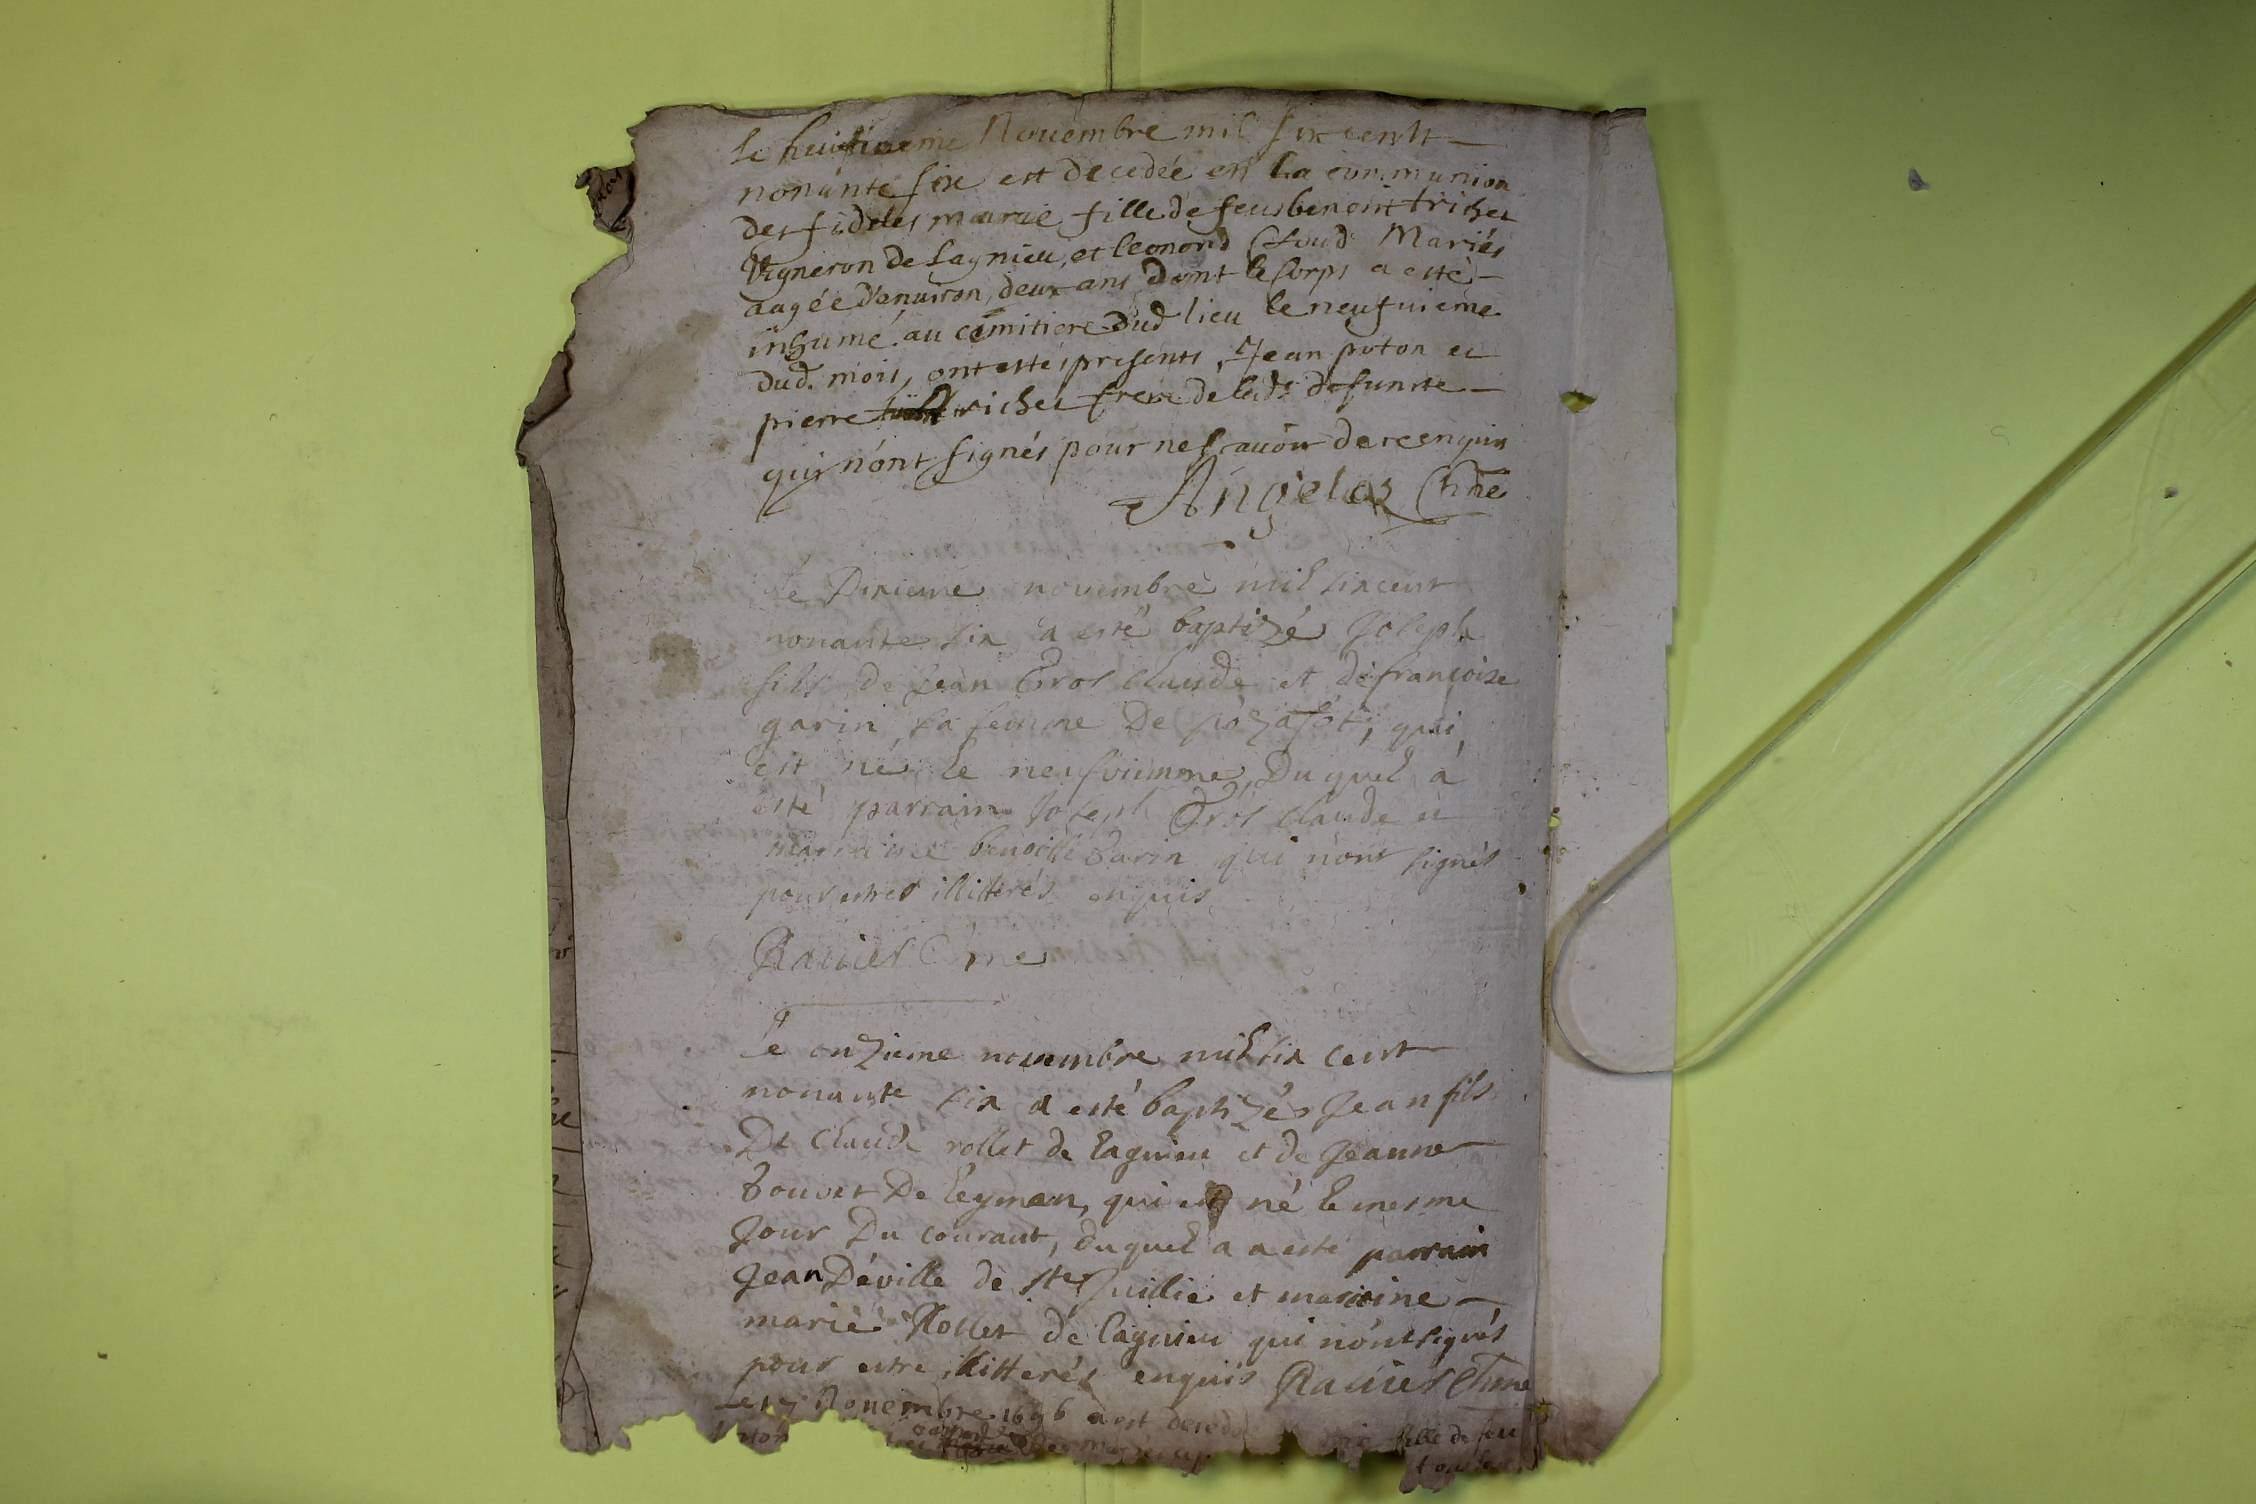 Le huictieme Novembre mil six cents
nonante six est decedée en la communion
des fideles marie fille de feu benoit trichet
Vigneron de Lagnieu, et leonord Cloud Mariés
aagée d'environ, deux ans dont le Corps a esté
inhumé au cimitiere dud lieu le neufvieme
dud. mois, ont estés presents, Jean poton et
pierre trichet frere de lade defuncte
qui n'ont signés pour ne scavoir de ce enquis
Angelot Chne
Le Dixieme novembre mil six cent
nonante six a esté baptizé Joseph
fils de Jean Gros Claude et de françoise
garin sa femme De qui
est né le neufviemme, Duquel a
esté parrain Joseph Gros Claude et
marraine benoitte Garin qui n'ont signés
pour estres illitterés enquis
Ravier Chne
Le onzieme novembre mil six cent
nonante six a esté baptizé Jean fils
De Claude rollet de lagnieu et de Jeanne
bouvet De leyman, qui est né le mesme
Jour Du courant, duquel a a esté parrain
Jean Déville de Ste Juillie et marrine
marie Rollet de lagnieu qui n'ont signés
pour estre illitterés enquis Ravier Chne
Novembre 1696 est decedé fille de feu